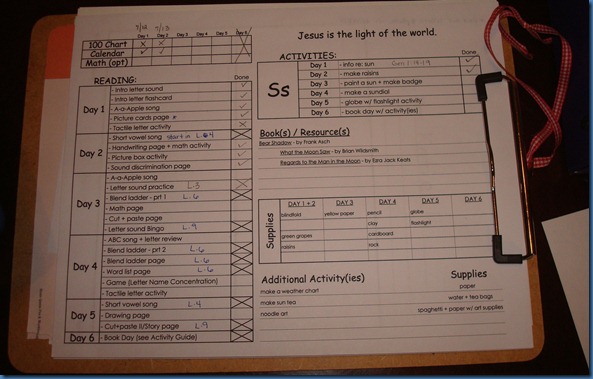 9/12 9/13
Day 1 Day 2 Day 3 Day 4 Day 5 Day 6
100 Chart X X
Calendar ✓ ✓
Math (opt)
READING: Done
Day 1
- Intro letter sound ✓
- Intro letter flashcard ✓
- A-a-Apple song ✓
- Picture cards page ✓
- Tactile letter activity X
Day 2
- Short vowel song start in L-4
- Handwriting page + math activity ✓
- Picture box activity ✓
- Sound discrimination page ✓
Day 3
- A-a-Apple song
- Letter sound practice L-3
- Blend ladder - prt 1 L-6
- Math page
- Cut + paste page
- Letter sound Bingo L-9
Day 4
- ABC song + letter review
- Blend ladder - prt 2 L-6
- Blend ladder page L-6
- Word list page L-6
- Game (Letter Name Concentration)
- Tactile letter activity
Day 5
- Short vowel song L-4
- Drawing page
- Cut+paste II/Story page L-9
Day 6
- Book Day (see Activity Guide)
Jesus is the light of the world.
ACTIVITIES: Done
Ss
Day 1 - info re: sun Gen 1:14-19 ✓
Day 2 - make raisins ✓
Day 3 - paint a sun + make badge
Day 4 - make a sundial
Day 5 - globe w/ flashlight activity
Day 6 - book day w/ activity(ies)
Book(s) / Resource(s)
Bear Shadow - by Frank Asch
What the Moon Saw - by Brian Wildsmith
Regards to the Man in the Moon - by Ezra Jack Keats
Supplies
DAY 1 + 2 DAY 3 DAY 4 DAY 5 DAY 6
blindfold yellow paper pencil globe
clay flashlight
green grapes cardboard
raisins rock
Additional Activity(ies) Supplies
make a weather chart paper
make sun tea water + tea bags
noodle art spaghetti + paper w/ art supplies